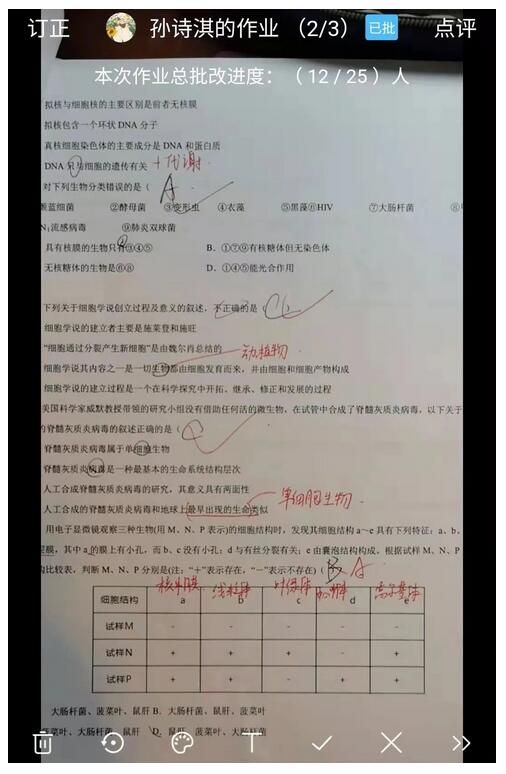 订正 孙诗淇的作业 （2/3） 已批 点评
本次作业总批改进度：（ 12 / 25 ）人
拟核与细胞核的主要区别是前者无核膜
拟核包含一个环状 DNA 分子
真核细胞染色体的主要成分是 DNA 和蛋白质
DNA 只与细胞的遗传有关 +代谢
对下列生物分类错误的是（ A
蓝细菌 ②酵母菌 ③变形虫 ④衣藻 ⑤黑藻⑥HIV ⑦大肠杆菌
N₁流感病毒 ⑨肺炎双球菌
具有核膜的生物只有③④⑤ B．①⑦⑨有核糖体但无染色体
无核糖体的生物是⑥⑧ D．①④⑤能光合作用
下列关于细胞学说创立过程及意义的叙述，不正确的是（ C
细胞学说的建立者主要是施莱登和施旺
“细胞通过分裂产生新细胞”是由魏尔肖总结的 动植物
细胞学说其内容之一是一切生物都由细胞发育而来，并由细胞和细胞产物构成
细胞学说的建立过程是一个在科学探究中开拓、继承、修正和发展的过程
美国科学家威默教授带领的研究小组没有借助任何活的微生物，在试管中合成了脊髓灰质炎病毒，以下关于
的脊髓灰质炎病毒的叙述正确的是（ C
脊髓灰质炎病毒属于单细胞生物
脊髓灰质炎病毒是一种最基本的生命系统结构层次
人工合成脊髓灰质炎病毒的研究，其意义具有两面性
人工合成的脊髓灰质炎病毒和地球上最早出现的生命类似 单细胞生物
用电子显微镜观察三种生物(用 M、N、P 表示)的细胞结构时，发现其细胞结构 a～e 具有下列特征：a、b、
膜，其中 a 的膜上有小孔，而 b、c 没有小孔；d 与有丝分裂有关；e 由囊泡结构构成，根据试样 M、N、P
比较表，判断 M、N、P 分别是(注：“+”表示存在，“-”表示不存在)（ B A
核膜 线粒体 叶绿体 中心体 高尔基体
细胞结构 a b c d e
试样M - - - - -
试样N + + + - +
试样P + + - + +
大肠杆菌、菠菜叶、鼠肝 B．大肠杆菌、鼠肝、菠菜叶
菠菜叶、大肠杆菌、鼠肝 D．鼠肝、菠菜叶、大肠杆菌